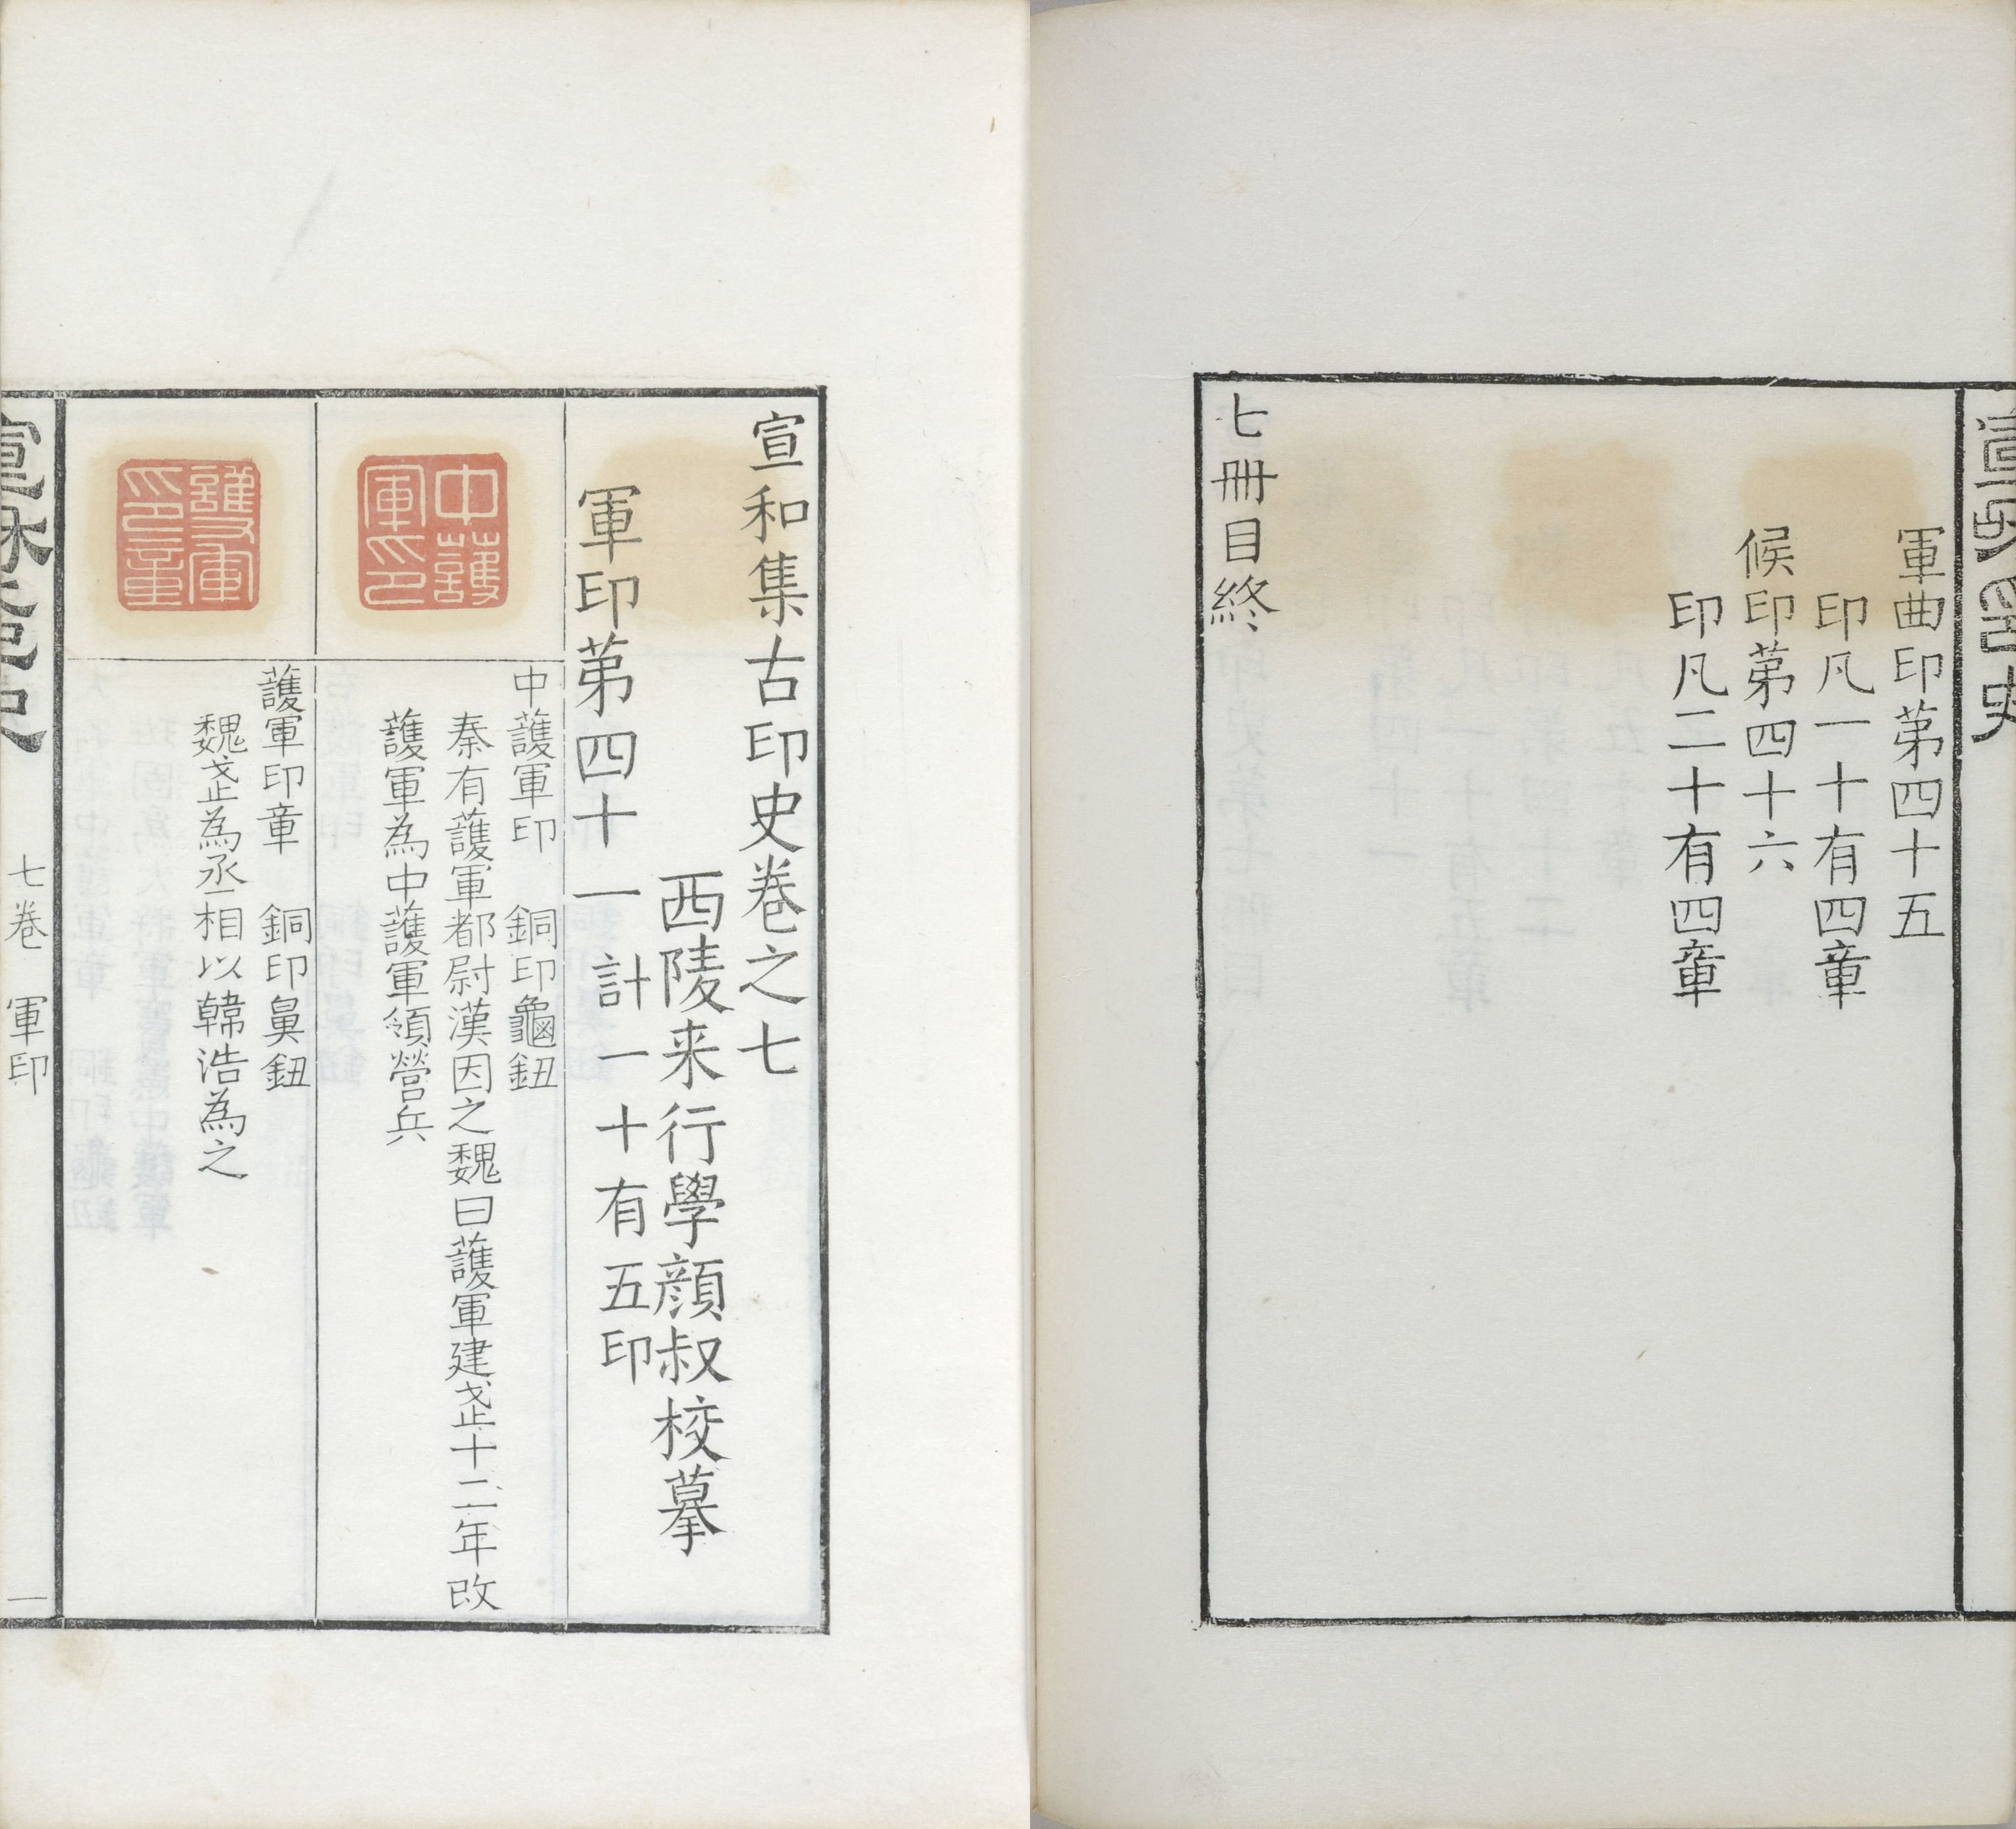 軍曲印第四十五
印凡一十有四章
候印第四十六
印凡二十有四章
七冊目終
宣和集古印史卷之七
西陵来行學顔叔校摹
軍印第四十一 計一十有五印
中護軍印
中護軍印 銅印龜鈕
秦有護軍都尉漢因之魏曰護軍建武十二年改
護軍為中護軍領營兵
護軍印章
護軍印章 銅印鼻鈕
魏武為丞相以韓浩為之
七卷 軍印 一